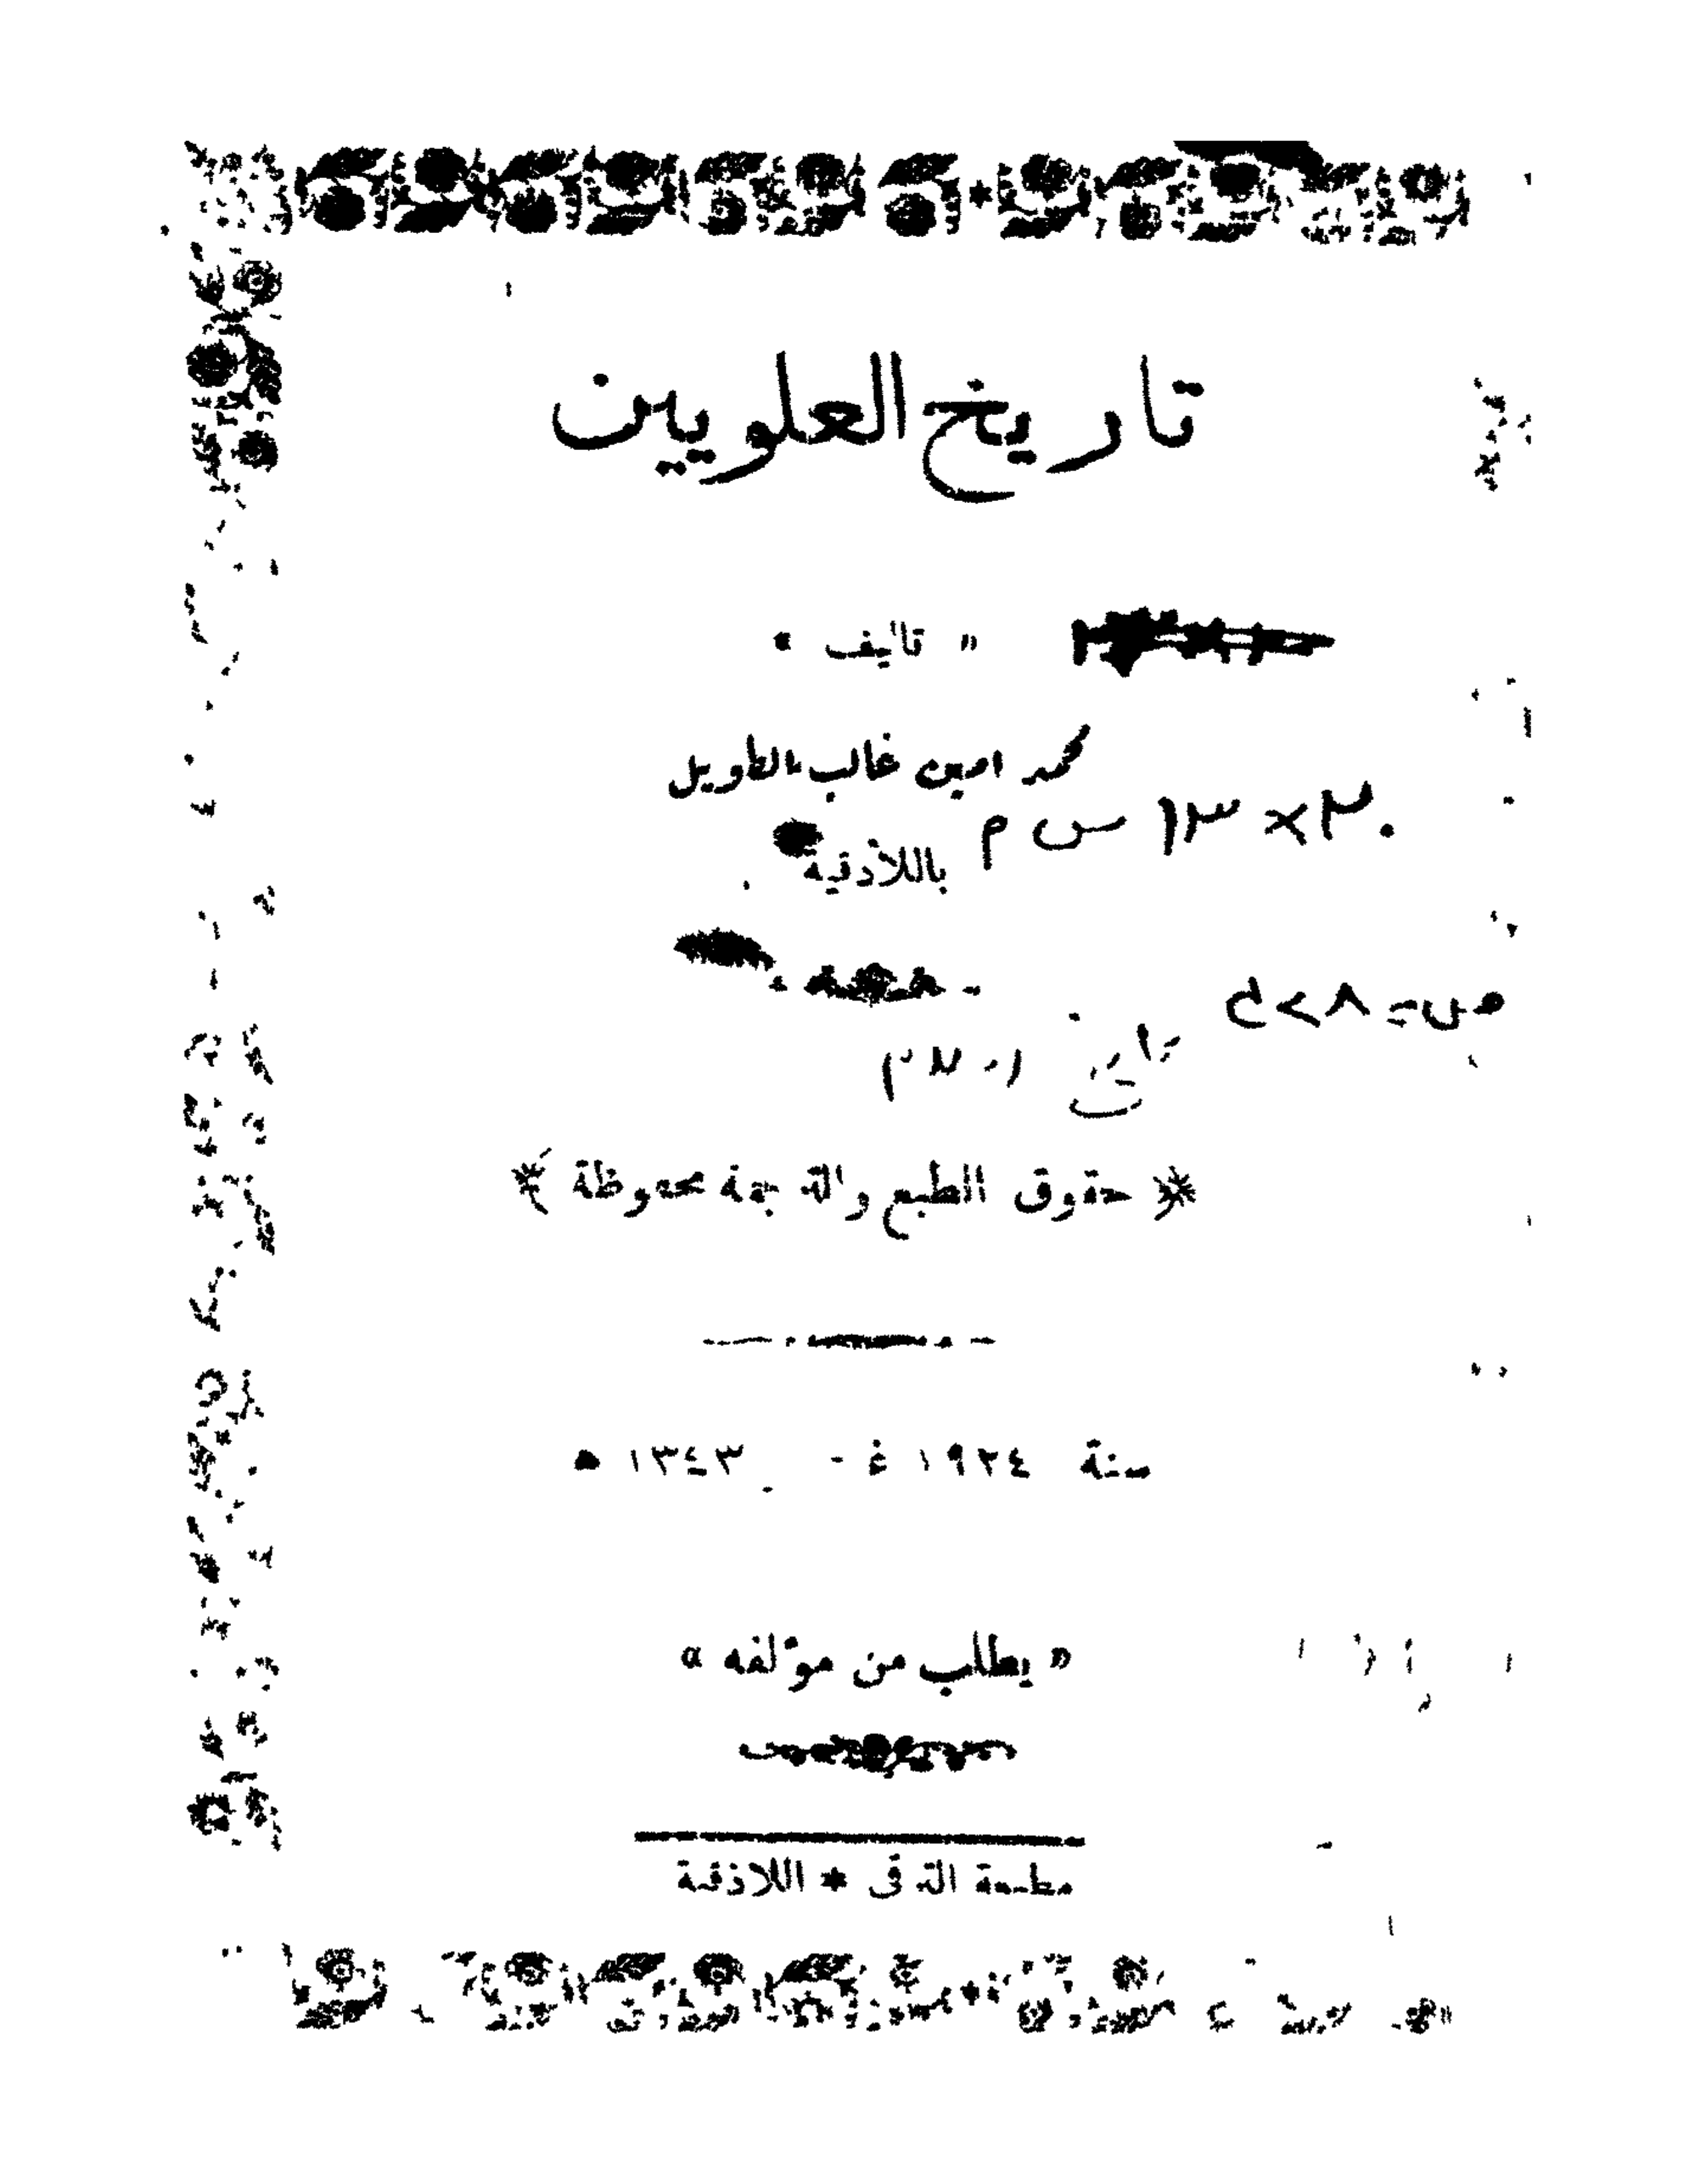 تاريخ العلويين
« تأليف »
محمد امين غالب الطويل
٢٠ × ١٣ س م
باللاذقية
تاريخ
﴿ حقوق الطبع والترجمة محفوظة ﴾
سنة ١٩٢٤ غ - ١٣٤٣ ه
« يطلب من مؤلفه »
مطبعة الترقي * اللاذقية